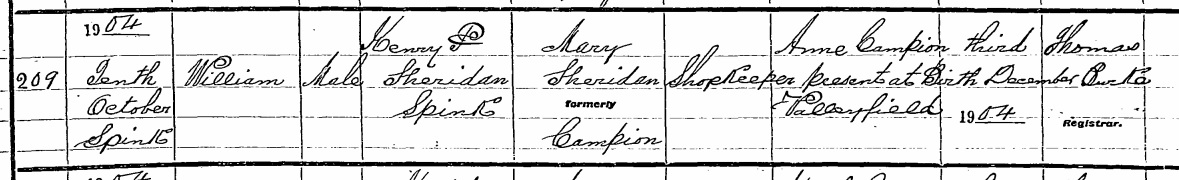 1904
Henry P Mary Anne Campion third Thomas
209 Tenth William Male Sheridan Sheridan Shopkeeper present at Birth December Burke
October Spink formerly 1904 Registrar.
Spink Campion